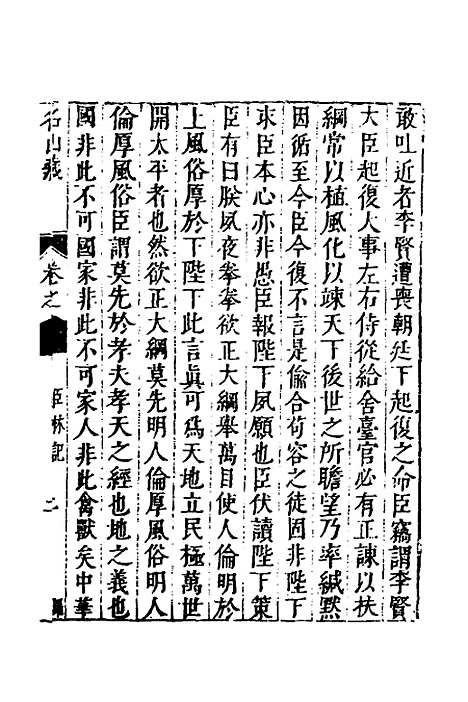 敢吐近者李賢遭喪朝廷下起復之命臣竊謂李賢
大臣起復大事左右侍從給舍臺官必有正諫以扶
綱常以植風化以竦天下後世之所瞻望乃率緘默
因循至今臣今復不言是偷合苟容之徒固非陛下
求臣本心亦非愚臣報陛下夙願也臣伏讀陛下策
臣有曰朕夙夜拳拳欲正大綱舉萬目使人倫明於
上風俗厚於下陛下此言真可為天地立民極萬世
開太平者也然欲正大綱莫先明人倫厚風俗明人
倫厚風俗臣謂莫先於孝夫孝天之經也地之義也
國非此不可國家非此不可家人非此禽獸矣中華
名山藏
卷之
臣林記
二